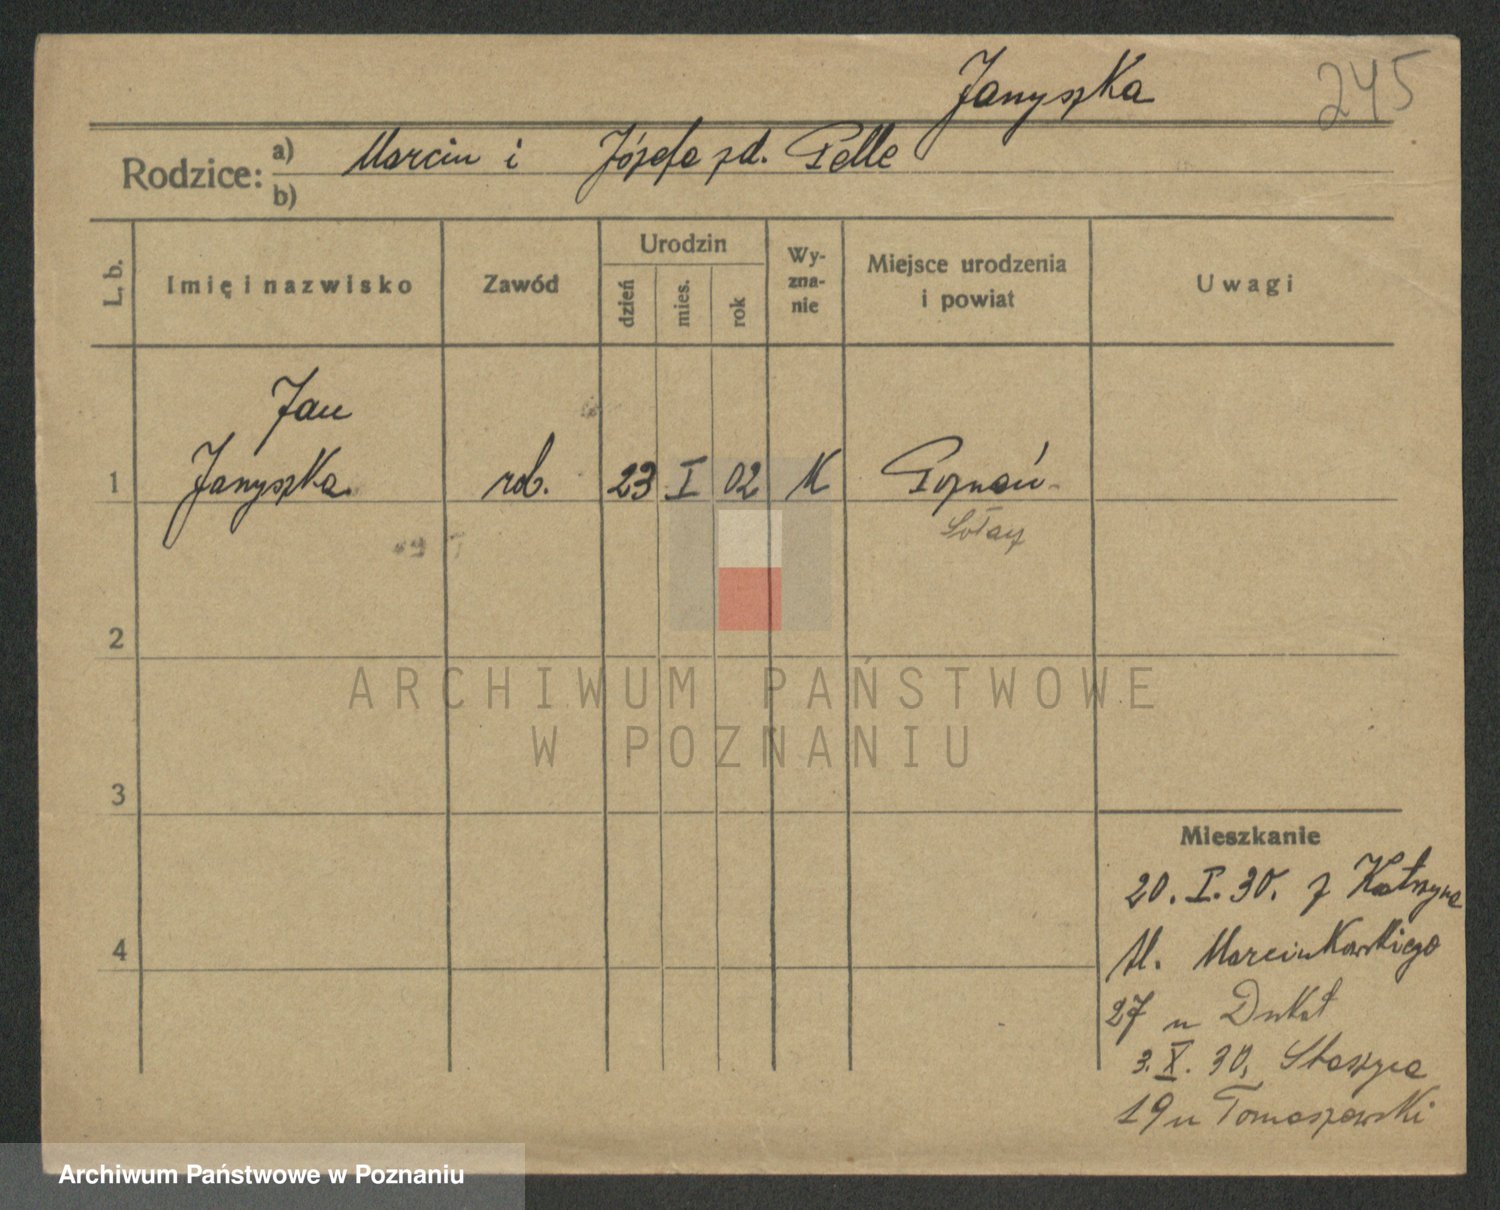 Janyszka 245
Rodzice: a) Marcin i Józefa zd. Pelle
b)
L. b. Imię i nazwisko Zawód Urodzin dzień mies. rok Wy-zna-nie Miejsce urodzenia i powiat Uwagi
Jan
1 Janyszka rob. 23 I 02 K Poznań
Sołacz
2
ARCHIWUM PAŃSTWOWE
W POZNANIU
3
Mieszkanie
20. I. 30. z
4
Al. Marcinkowskiego
27 u Dukat
3. X. 30. Staszyca
19 u Tomaszewski
Archiwum Państwowe w Poznaniu